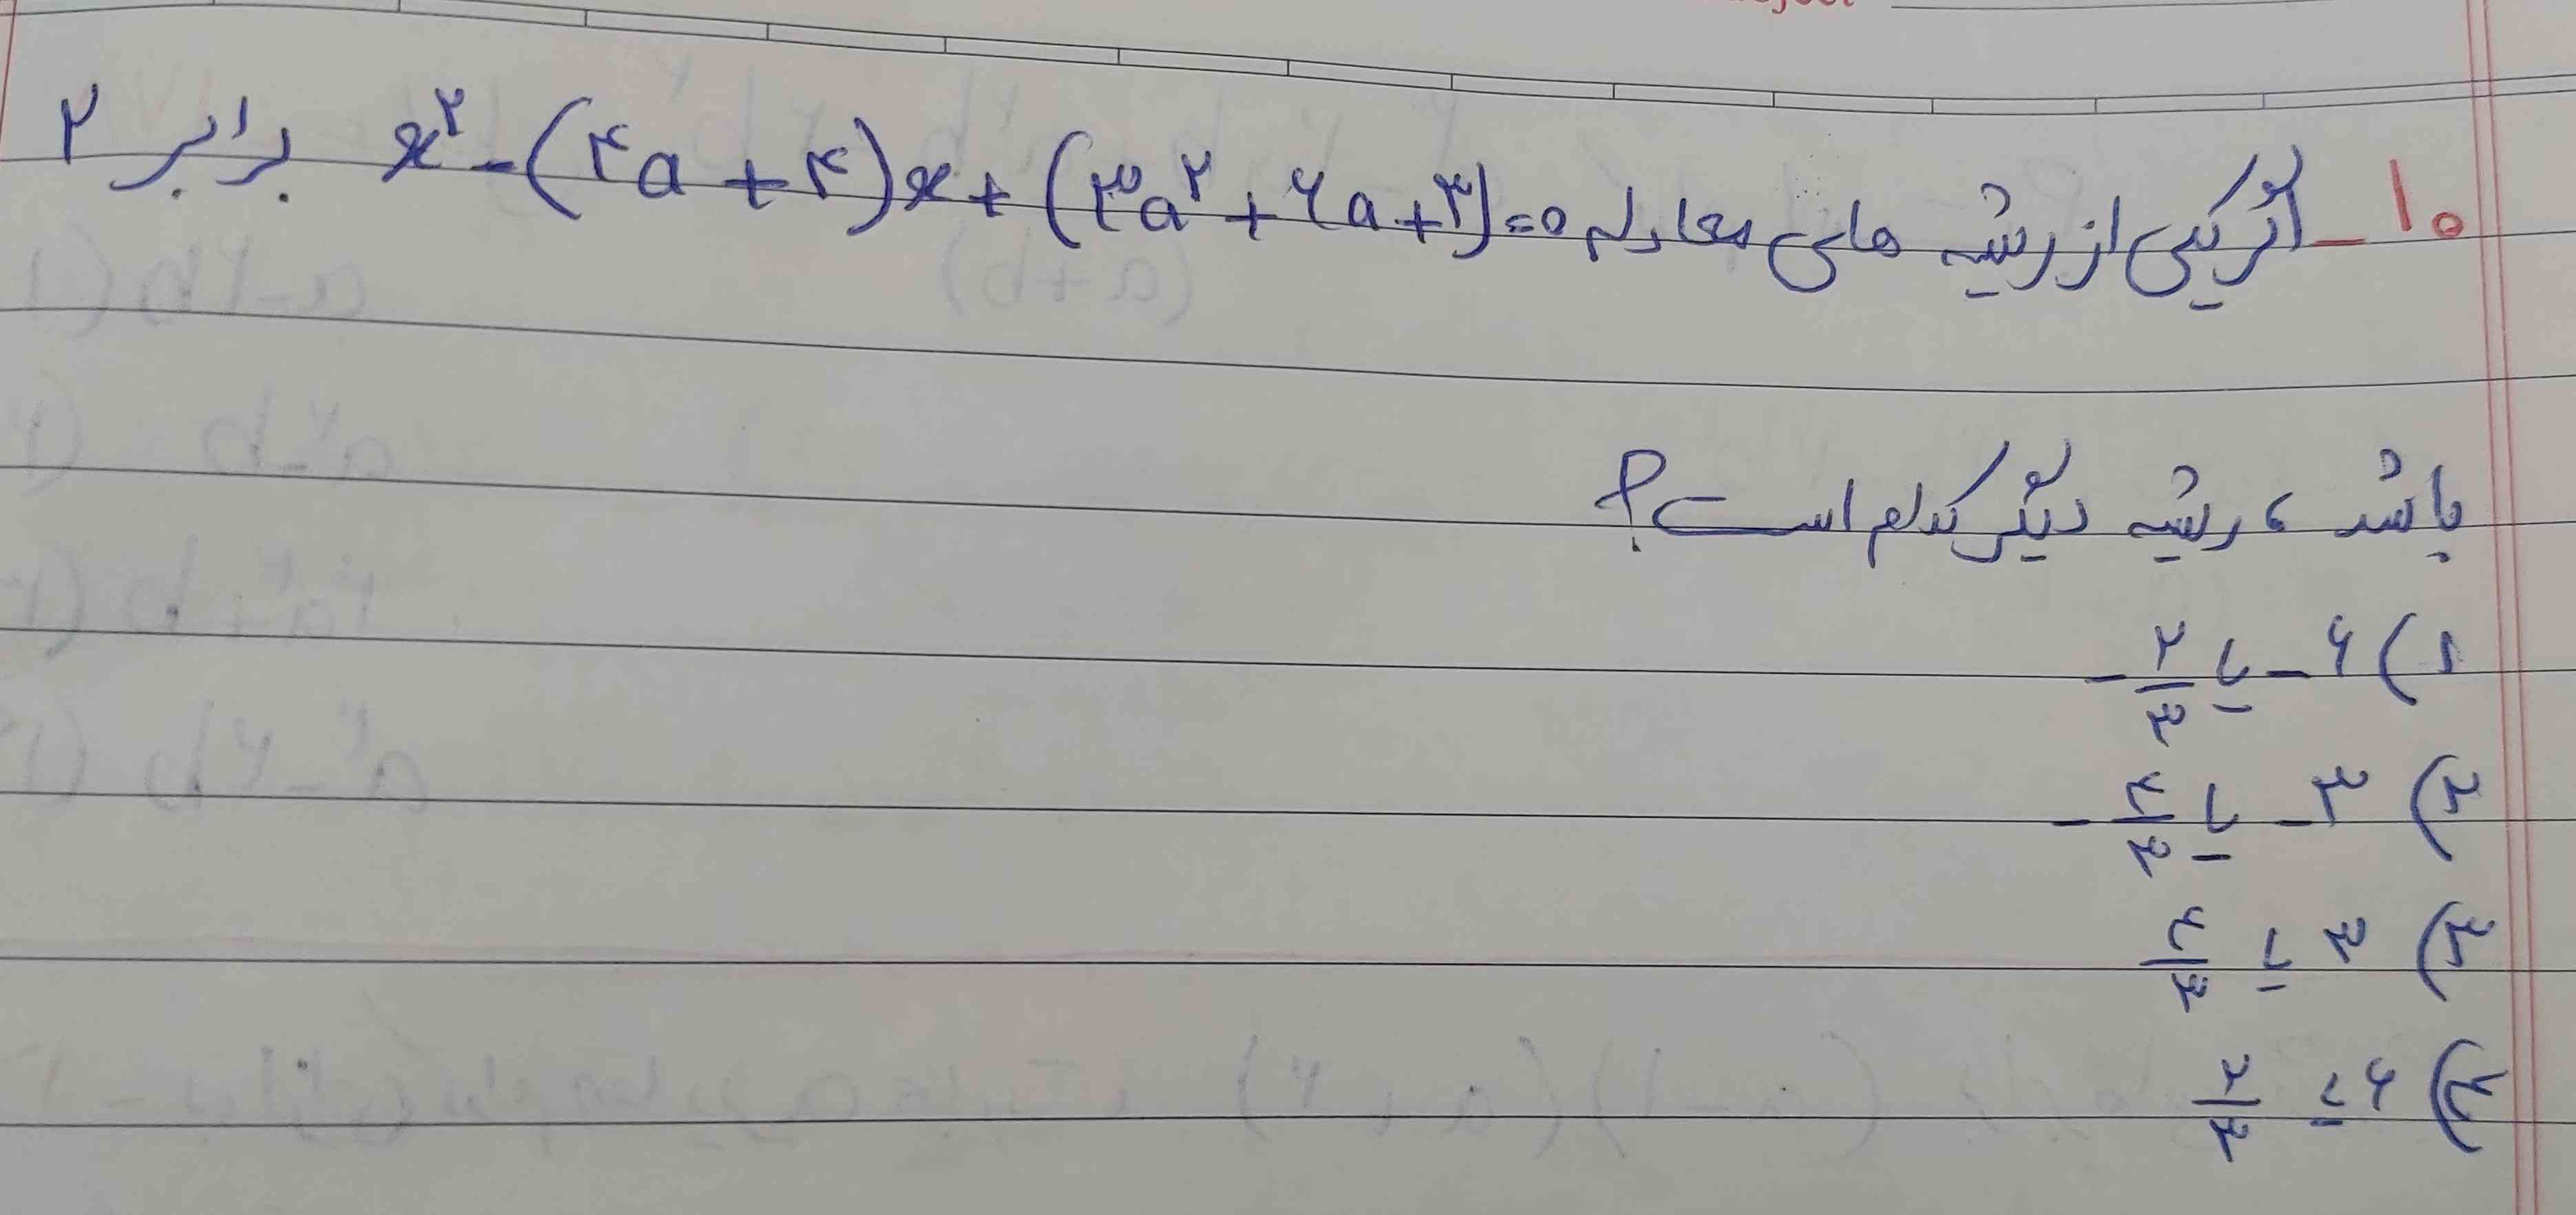 ۱۰_ اگر یکی از ریشه های معادله x²-(۴a+۴)x+(۳a²+۶a+۳)=۰ برابر ۲
باشد، ریشه دیگر کدام است؟
۱) ۶- یا ۲/۳-
۲) ۳- یا ۴/۲-
۳) ۳ یا ۴/۳
۴) ۶ یا ۲/۳